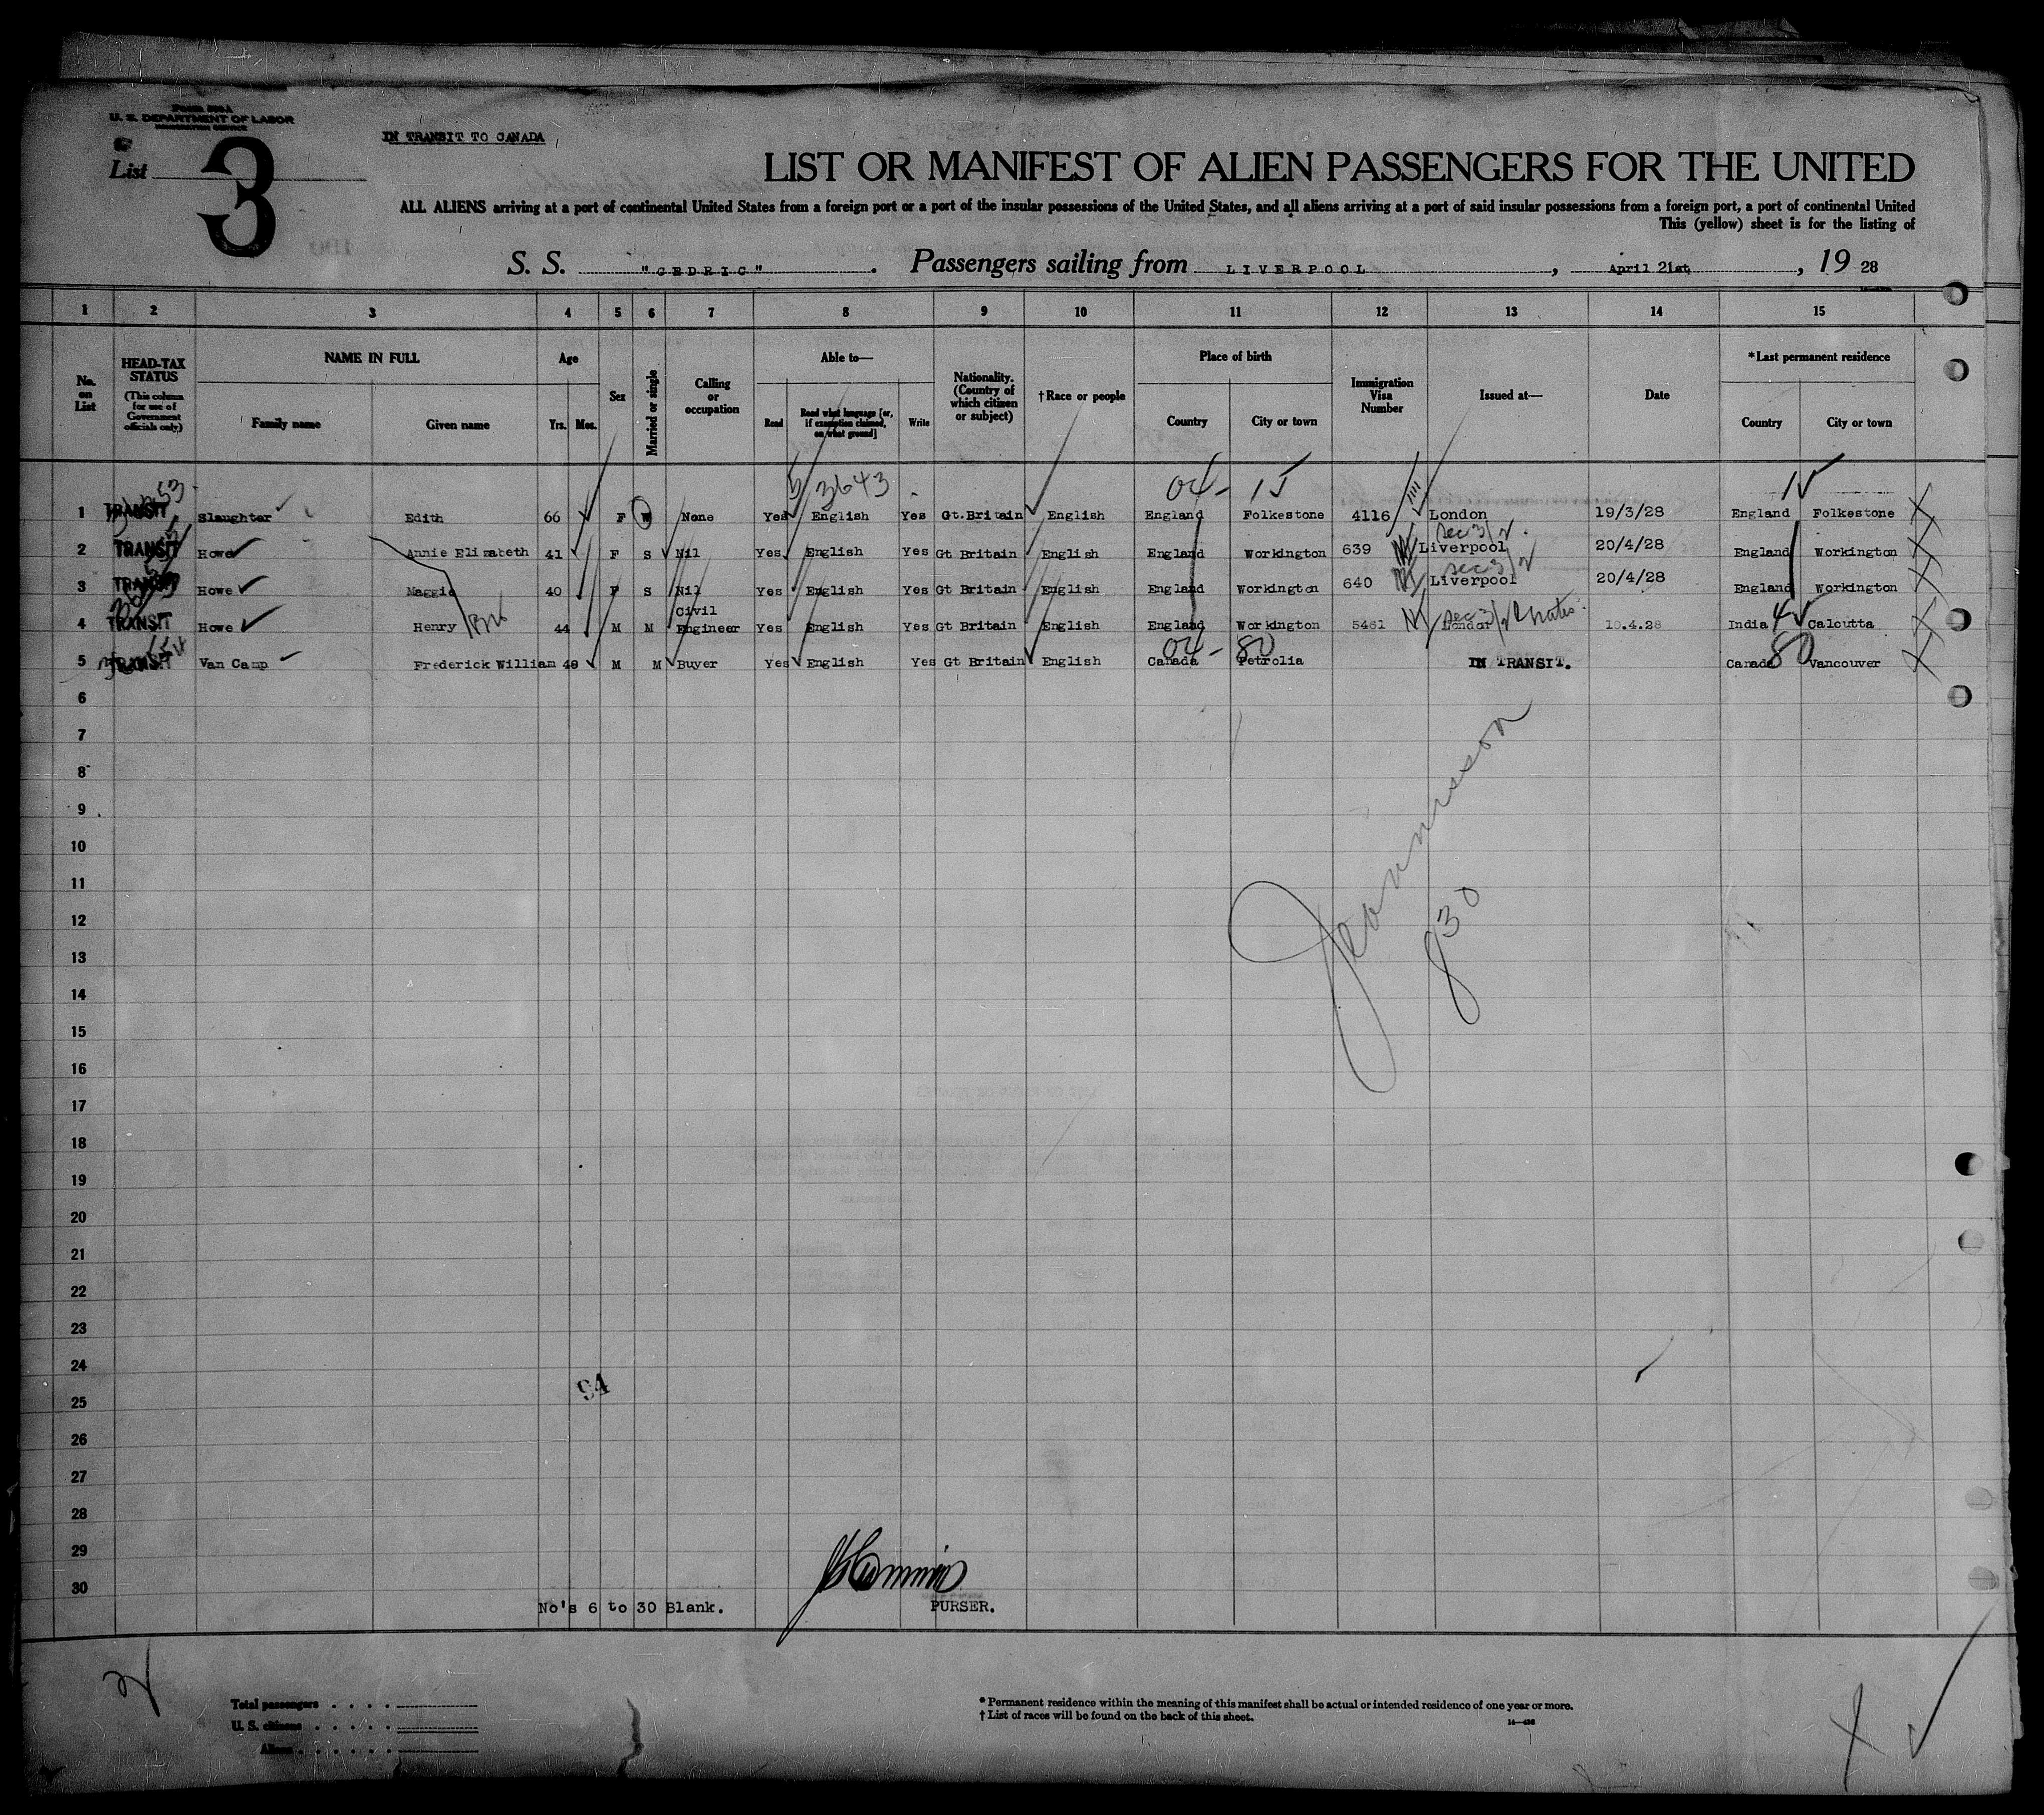 U. S. DEPARTMENT OF LABOR
IMMIGRATION SERVICE
IN TRANSIT TO CANADA
List 3
LIST OR MANIFEST OF ALIEN PASSENGERS FOR THE UNITED
ALL ALIENS arriving at a port of continental United States from a foreign port or a port of the insular possessions of the United States, and all aliens arriving at a port of said insular possessions from a foreign port, a port of continental United
This (yellow) sheet is for the listing of
S. S. "CEDRIC". Passengers sailing from LIVERPOOL, April 21st, 19 28
1 2 3 4 5 6 7 8 9 10 11 12 13 14 15
No. on List
HEAD-TAX STATUS (This column for use of Government officials only)
NAME IN FULL Family name Given name
Age Yrs. Mos.
Sex
Married or single
Calling or occupation
Able to— Read Read what language [or, if exemption claimed, on what ground] Write
Nationality. (Country of which citizen or subject)
† Race or people
Place of birth Country City or town
Immigration Visa Number
Issued at—
Date
*Last permanent residence Country City or town
3643 04- 15
1 TRANSIT Slaughter Edith 66 F W None Yes English Yes Gt.Britain English England Folkestone 4116 London 19/3/28 England Folkestone
2 TRANSIT Howe Annie Elizabeth 41 F S Nil Yes English Yes Gt Britain English England Workington 639 Liverpool 20/4/28 England Workington
3 TRANSIT Howe Maggie 40 F S Nil Yes English Yes Gt Britain English England Workington 640 Liverpool 20/4/28 England Workington
4 TRANSIT Howe Henry 44 M M Civil Engineer Yes English Yes Gt Britain English England Workington 5461 London 10.4.28 India Calcutta
04- 80 80
5 TRANSIT Van Camp Frederick William 49 M M Buyer Yes English Yes Gt Britain English Canada Petrolia IN TRANSIT. Canada Vancouver
6
7
8
9
10
11
12
13
14
15
16
17
18
19
20
21
22
23
24
25
26
27
28
29
30
830
94
No's 6 to 30 Blank.
PURSER.
Total passengers
U. S. citizens
Aliens
* Permanent residence within the meaning of this manifest shall be actual or intended residence of one year or more.
† List of races will be found on the back of this sheet.